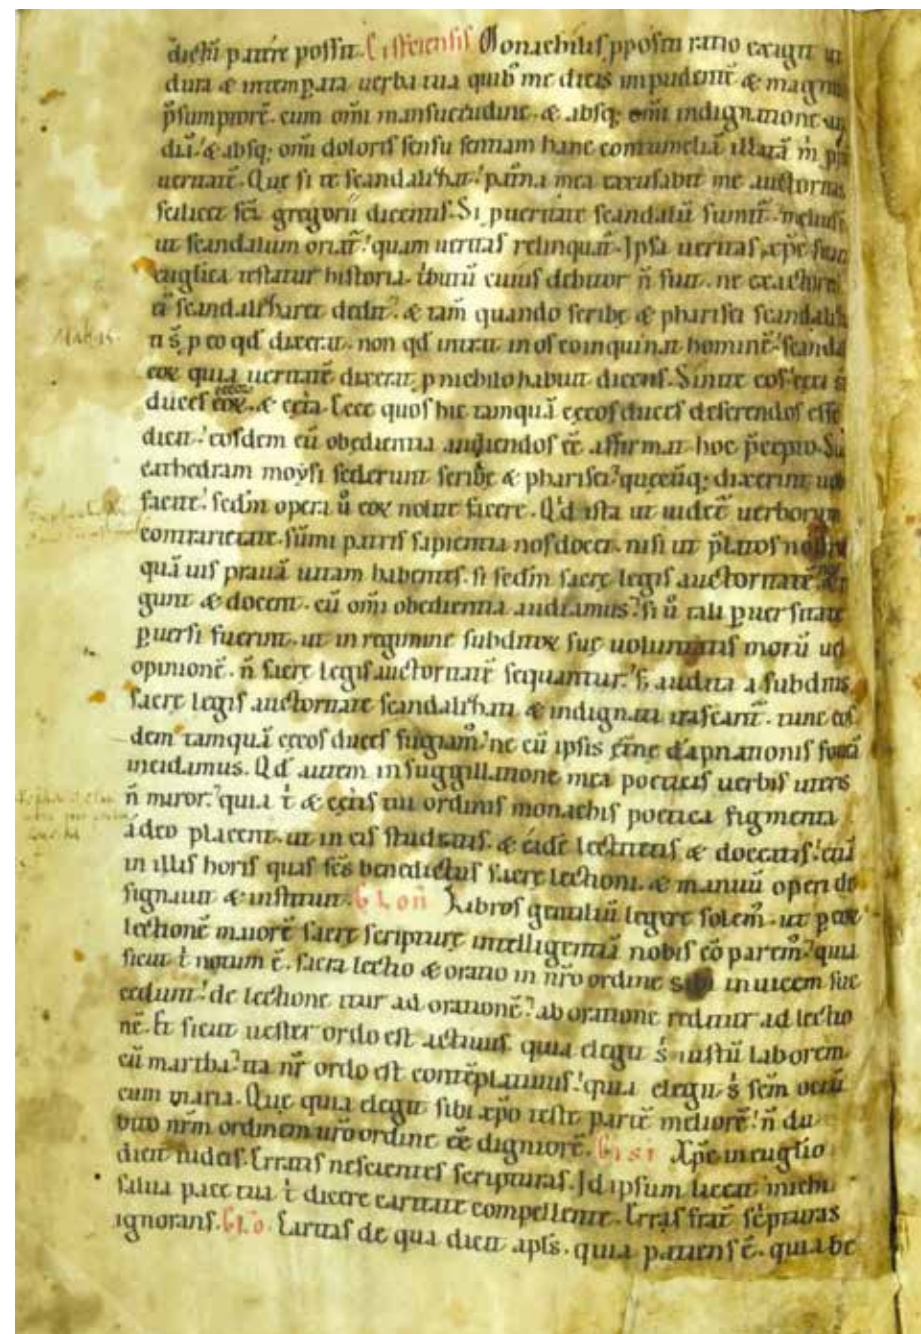 dictū pati possū. Cisterciensis Monachilis ꝓpositi ratio exigit ut
dura & intemꝑata uerba tua quibꝰ me dicis impudentē & magnę
p̄sumptorē. cum om̄i mansuetudine. & absq; om̄i indignatione au
diā. & absq; om̄i doloris sensu sentiam hanc contumeliā illatā m̄ ꝓpt
ueritatē. Que si te scandalizat. pat̄na mea excusabit me auctoritas
scilicet sc̄i gregorii dicentis. Si p ueritate scandalū sumit̄. melius ē
ut scandalum oriat̄. quam ueritas relinquat̄. Ipsa ueritas xp̄c sicut
euglica testatur historia. tributū cuius debitor n̄ fuit. ne exactores
ei scandalizaret dedit. & tam̄ quando scribę & pharisei scandaliza
ti s̄ p eo qd̄ dixerat. non qd̄ intrat in os coinquinat hominē. scanda
eoꝝ quia ueritatē dixerat ꝓ nichilo habuit dicens. Sinite eos. ceci s̄
duces cecoꝝ. & cet̄a. Ecce quos hic tamquā cęcos duces deserendos esse
dicit. eosdem cū obedientia audiendos eē affirmat hoc p̄cepto. Sup
cathedram moysi sederunt scribę & pharisei. quęcūq; dixerint uob
facite. sed̄m opera ū eoꝝ nolite facere. Qd̄ ista ut uidet̄ uerborum
contrarietate. sūmi patris sapientia nos docet. nisi ut p̄latos nostros
quā uis prauā uitam habentes. si sed̄m sacrę legis auctoritatē
gunt & docent. cū om̄i obedientia audiamus. si ū tali ꝑuersitate
ꝑuersi fuerint. ut in regimine subditoꝝ suę uoluntatis motū uel
opinionē. n̄ sacrę legis auctoritatē sequantur. s; audita a subditis
sacrę legis auctoritate scandalizati & indignati irascant̄. tunc eos
dem tamquā cęcos duces fugiamꝰ. ne cū ipsis dāpnationis foueā
incidamus. Qd̄ autem in suggillatione mea poeticis uerbis uteris
n̄ miror. quia t̄ & cęt̄is tui ordinis monachis poetica figmenta
adeo placent. ut in eis studeatis. & eadē lectitetis & doceatis. etiā
in illis horis quas sc̄s benedictus sacrę lectioni. & manuū operi de
signauit & instituit. Clon̄ Libros gentiliū legere solemꝰ. ut p eoꝝ
lectionē maiorē sacrę scripturę intelligentiā nobis cōparemꝰ. quia
sicut t̄ notum ē. sacra lectio & oratio in nr̄o ordine sibi inuicem suc
cedunt. de lectione itur ad orationē. ab oratione reditur ad lectio
nē. Et sicut uester ordo est actiuus. quia elegit s̄ iustū laborem
cū martha. ita nr̄ ordo est contēplatiuus. quia elegit s̄ sc̄m ociū
cum maria. Que quia elegit sibi xp̄o teste partē meliorē. n̄ du
bito nr̄m ordinem ur̄o ordine eē digniorē. Cisi Xp̄c in euglio
dicit iudeis. Erratis nescientes scripturas. Id ipsum liceat michi
salua pace tua t̄ dicere caritate compellente. Erras frat̄ sc̄pturas
ignorans. Clō. Caritas de qua dicit apl̄s. quia patiens ē. quia be